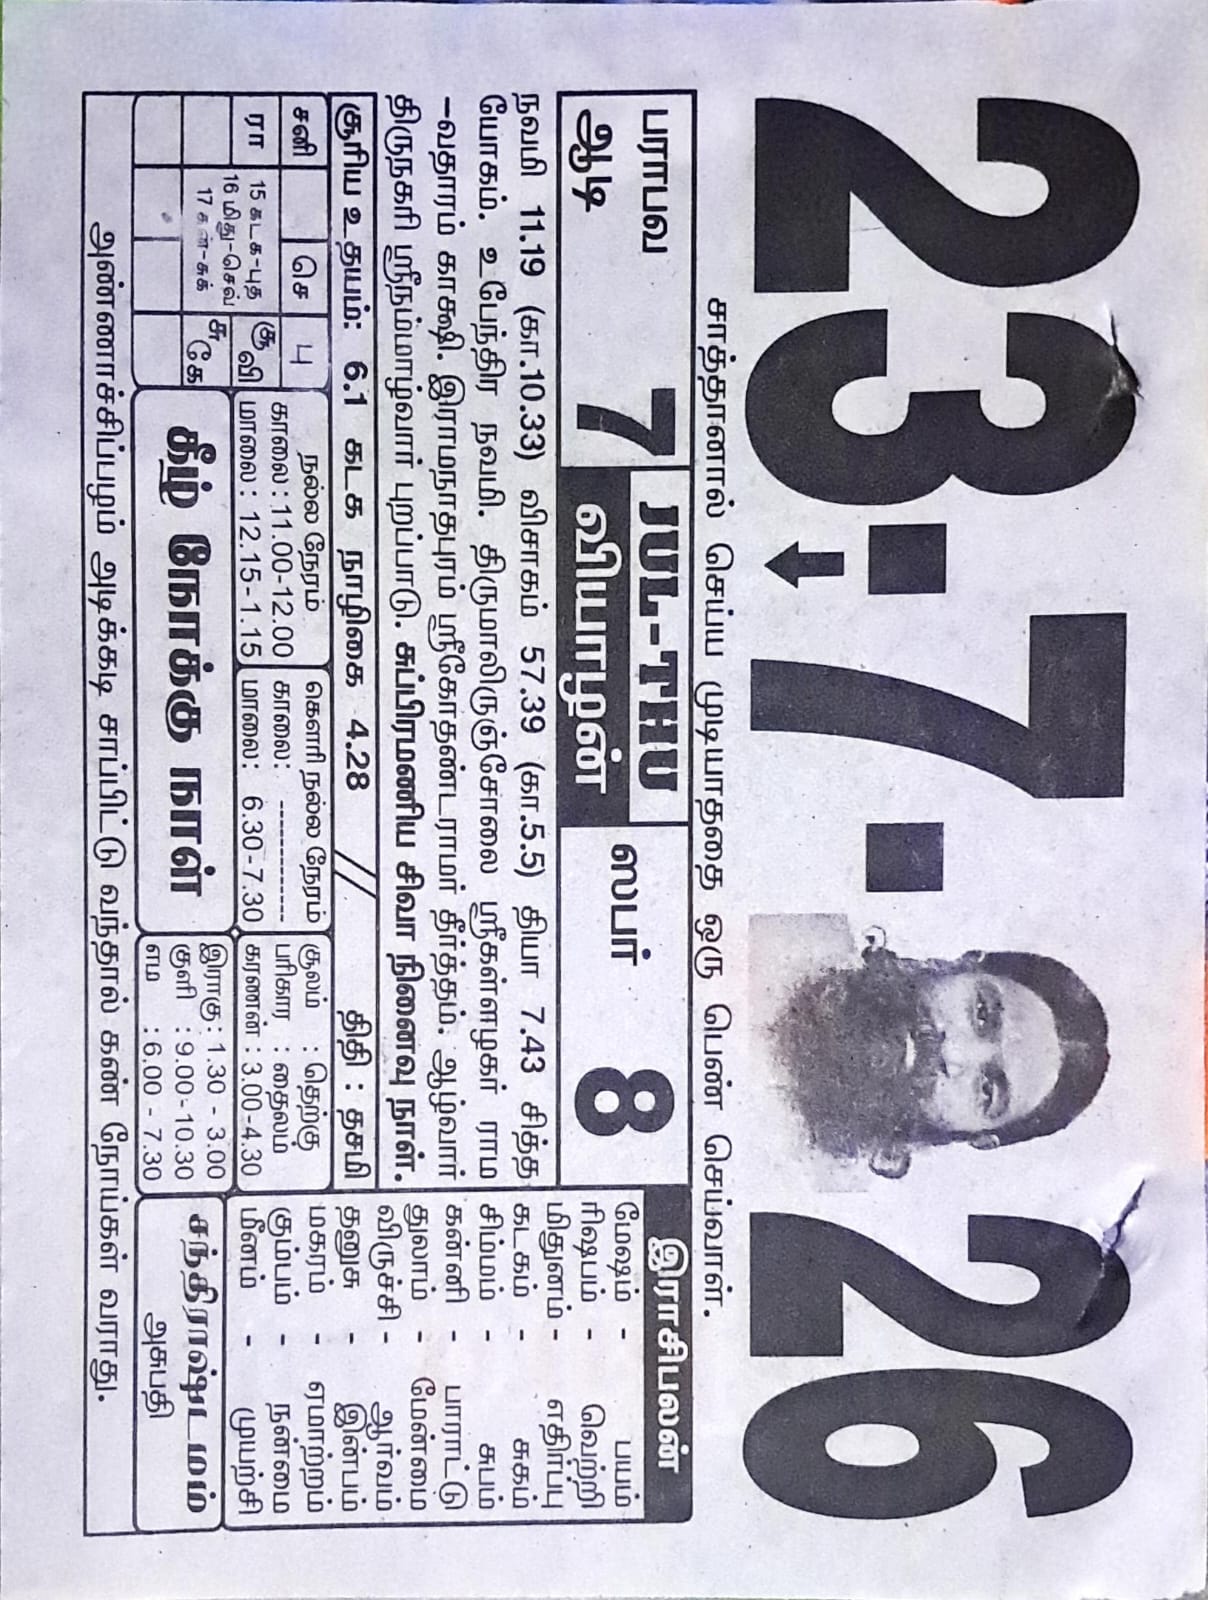 23·7·26
சாத்தானால் செய்ய முடியாததை ஒரு பெண் செய்வாள்.
பராபவ
ஆடி 7
JUL-THU
வியாழன்
ஸபர் 8
நவமி 11.19 (கா.10.33) விசாகம் 57.39 (கா.5.5) தியா 7.43 சித்த
யோகம். உபேந்திர நவமி. திருமாலிருஞ்சோலை ஸ்ரீகள்ளழகர் ராம
-வதாரம் காக்ஷி. இராமநாதபுரம் ஸ்ரீகோதண்டராமர் தீர்த்தம். ஆழ்வார்
திருநகரி ஸ்ரீநம்மாழ்வார் புறப்பாடு. சுப்பிரமணிய சிவா நினைவு நாள்.
சூரிய உதயம்: 6.1 கடக நாழிகை 4.28 // திதி : தசமி
சனி செ பு
ரா 15 கடக-புத சூ வி
16 மிது-செவ்
17 கன்-சுக் சு கே
நல்ல நேரம்
காலை: 11.00-12.00
மாலை: 12.15-1.15
கௌரி நல்ல நேரம்
காலை: -----------
மாலை: 6.30-7.30
சூலம் : தெற்கு
பரிகார : தைலம்
கரணன் : 3.00-4.30
கீழ் நோக்கு நாள்
இராகு : 1.30 - 3.00
குளி : 9.00-10.30
எம : 6.00 - 7.30
இராசிபலன்
மேஷம் - பயம்
ரிஷபம் - வெற்றி
மிதுனம் - எதிர்ப்பு
கடகம் - சுகம்
சிம்மம் - சுபம்
கன்னி - பாராட்டு
துலாம் - மேன்மை
விருச்சி - ஆர்வம்
தனுசு - இன்பம்
மகரம் - ஏமாற்றம்
கும்பம் - நன்மை
மீனம் - முயற்சி
சந்திராஷ்டமம்
அசுபதி
அண்ணாச்சிப்பழம் அடிக்கடி சாப்பிட்டு வந்தால் கண் நோய்கள் வராது.